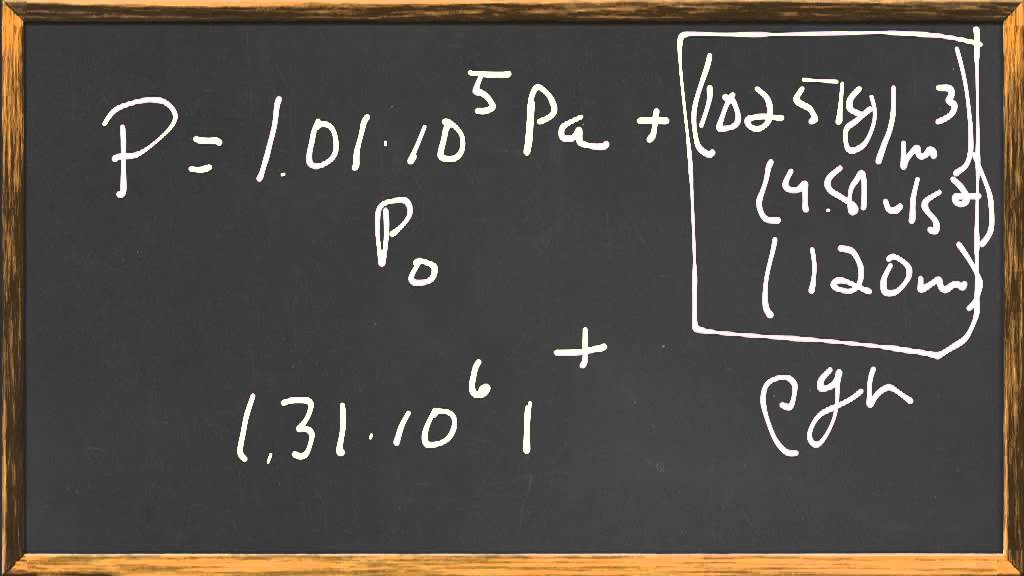 P = 1.01 · 10⁵ Pa + (1025 kg/m³)
(9.81 m/s²)
(120m)
P₀
+
ρgh
1.31 · 10⁶